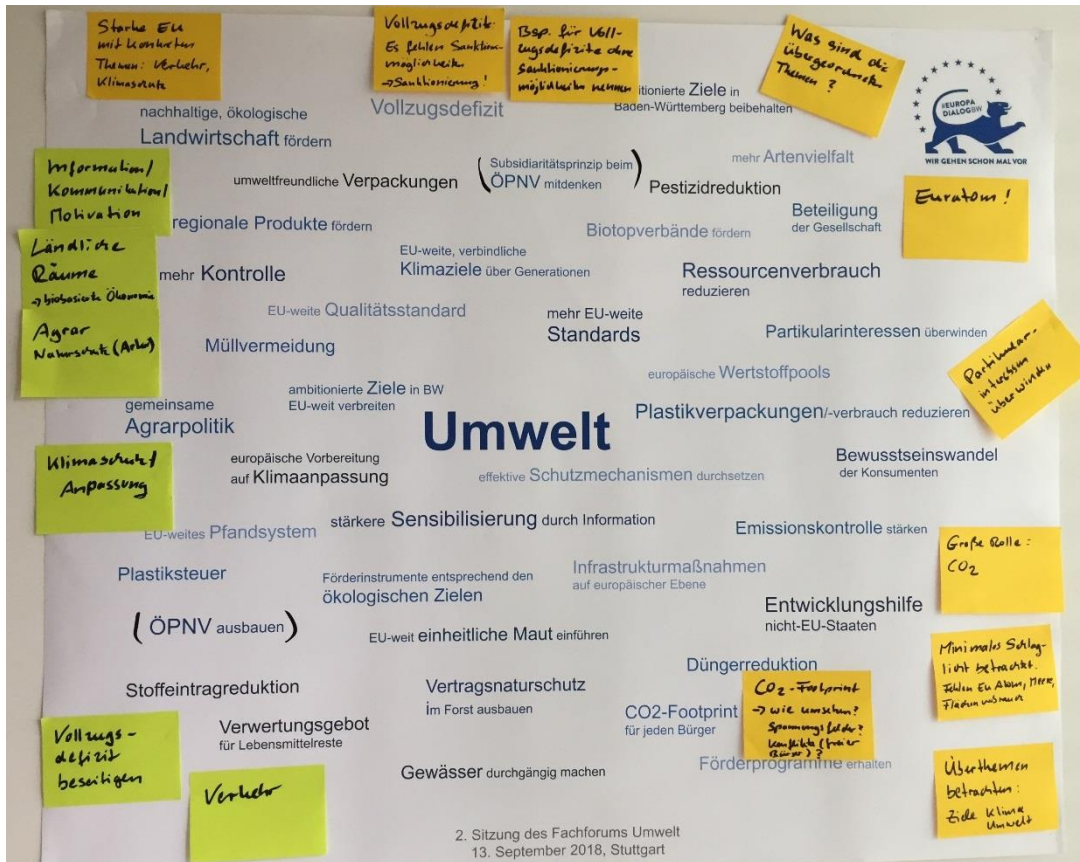 Starke EU
mit konkreten
Themen: Verkehr,
Klimaschutz
Vollzugsdefizite:
Es fehlen Sanktions-
möglichkeiten
→ Sanktionierung!
Bsp. für Voll-
zugsdefizite ohne
Sanktionierungs-
möglichkeiten nennen
Was sind die
übergeordneten
Themen?
#EUROPA
DIALOGBW
WIR GEHEN SCHON MAL VOR
nachhaltige, ökologische
Landwirtschaft fördern
Vollzugsdefizit
itionierte Ziele in
Baden-Württemberg beibehalten
Information/
Kommunikation/
Motivation
umweltfreundliche Verpackungen
(Subsidiaritätsprinzip beim
ÖPNV mitdenken)
mehr Artenvielfalt
Pestizidreduktion
Euratom!
regionale Produkte fördern
Biotopverbände fördern
Beteiligung
der Gesellschaft
Ländliche
Räume
→ biobasierte Ökonomie
mehr Kontrolle
EU-weite, verbindliche
Klimaziele über Generationen
Ressourcenverbrauch
reduzieren
Agrar
Naturschutz (Arten)
EU-weite Qualitätsstandard
mehr EU-weite
Standards
Partikularinteressen überwinden
Müllvermeidung
europäische Wertstoffpools
Partikular-
interessen
überwinden
ambitionierte Ziele in BW
EU-weit verbreiten
gemeinsame
Agrarpolitik
Umwelt
Plastikverpackungen/-verbrauch reduzieren
Klimaschutz/
Anpassung
europäische Vorbereitung
auf Klimaanpassung
effektive Schutzmechanismen durchsetzen
Bewusstseinswandel
der Konsumenten
EU-weites Pfandsystem
stärkere Sensibilisierung durch Information
Emissionskontrolle stärken
Große Rolle:
CO2
Plastiksteuer
Förderinstrumente entsprechend den
ökologischen Zielen
Infrastrukturmaßnahmen
auf europäischer Ebene
Entwicklungshilfe
nicht-EU-Staaten
(ÖPNV ausbauen)
EU-weit einheitliche Maut einführen
Minimales Schlag-
licht betrachtet.
Fehlen EU Atom, Meere,
Düngerreduktion
Stoffeintragreduktion
Vertragsnaturschutz
im Forst ausbauen
CO2-Footprint
→ wie umsetzen?
Spannungsfelder?
Konflikte (freier
Bürger)?
CO2-Footprint
für jeden Bürger
Vollzugs-
defizit
beseitigen
Verwertungsgebot
für Lebensmittelreste
Verkehr
Gewässer durchgängig machen
Förderprogramme erhalten
Überthemen
betrachten:
Ziele Klima
Umwelt
2. Sitzung des Fachforums Umwelt
13. September 2018, Stuttgart